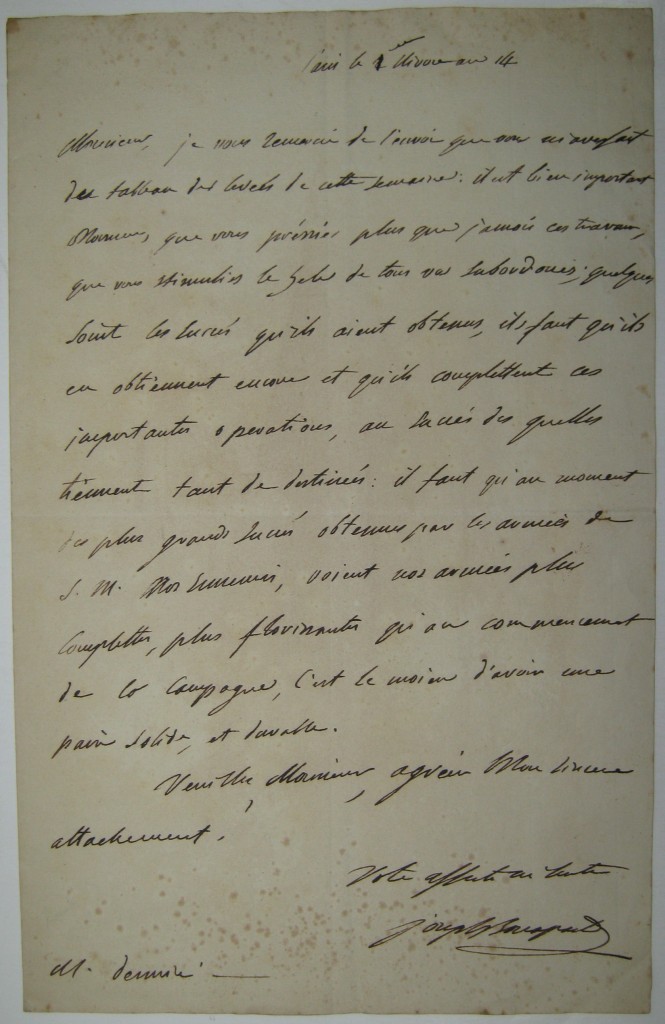 Paris le 1er Nivose an 14
Monsieur, je vous remercie de l'envoi que vous m'avez fait
des tableau des levées de cette semaine: il est bien important
Monsieur, que vous pressiez plus que jamais ces travaux,
que vous stimuliés le zele de tous vos subordonnés; quelques
soint les succés qu'ils aient obtenus, il faut qu'ils
en obtiennent encore et qu'ils complettent ces
importantes operations, au succés des quelles
tiennent tant de destinées: il faut qu'au moment
des plus grands succés obtenus par les armées de
S. M. Nos Ennemis, voient nos armées plus
complettes, plus florissantes qu'au commencement
de la Campagne, c'est le moien d'avoir une
paix solide, et durable.
Veuillez Monsieur, agréer Mon sincere
attachement,
Votre affectioné
Joseph Bonaparte
M.